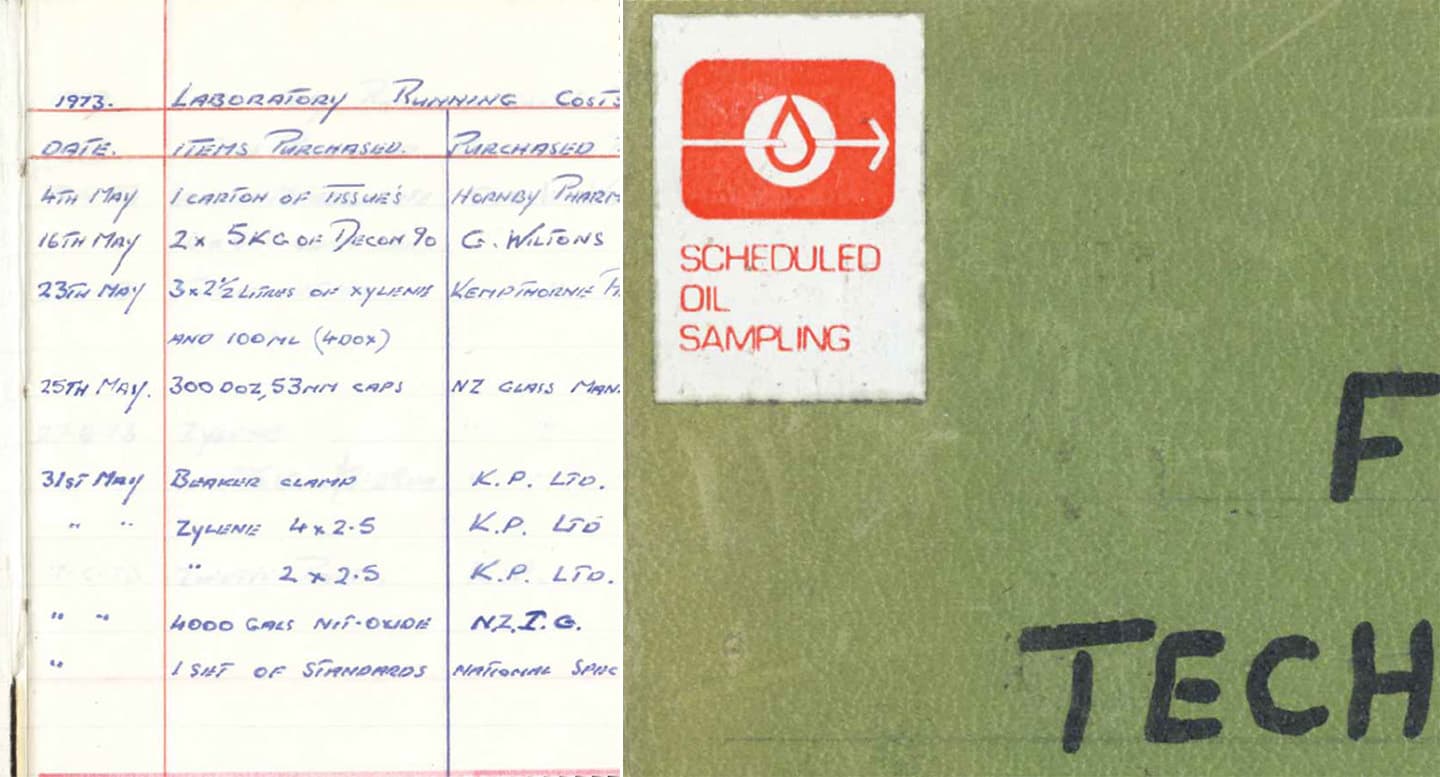 1973. LABORATORY RUNNING COSTS
DATE. ITEMS PURCHASED. PURCHASED
4TH MAY 1 CARTON OF TISSUE'S HORNBY PHARM
16TH MAY 2 x 5KG OF DECON 90 G. WILTONS
23TH MAY 3x2½ LITRES OF XYLENE KEMPTHORNE
AND 100ML (400x)
25TH MAY. 300 DOZ, 53MM CAPS NZ GLASS MAN.
31ST MAY BEAKER CLAMP K.P. LTD.
" " ZYLENE 4x2.5 K.P. LTD
" 2x2.5 K.P. LTD.
" " 4000 GALS NIT-OXIDE N.Z.I.G.
" 1 SET OF STANDARDS NATIONAL SPEC
SCHEDULED
OIL
SAMPLING
F
TECH